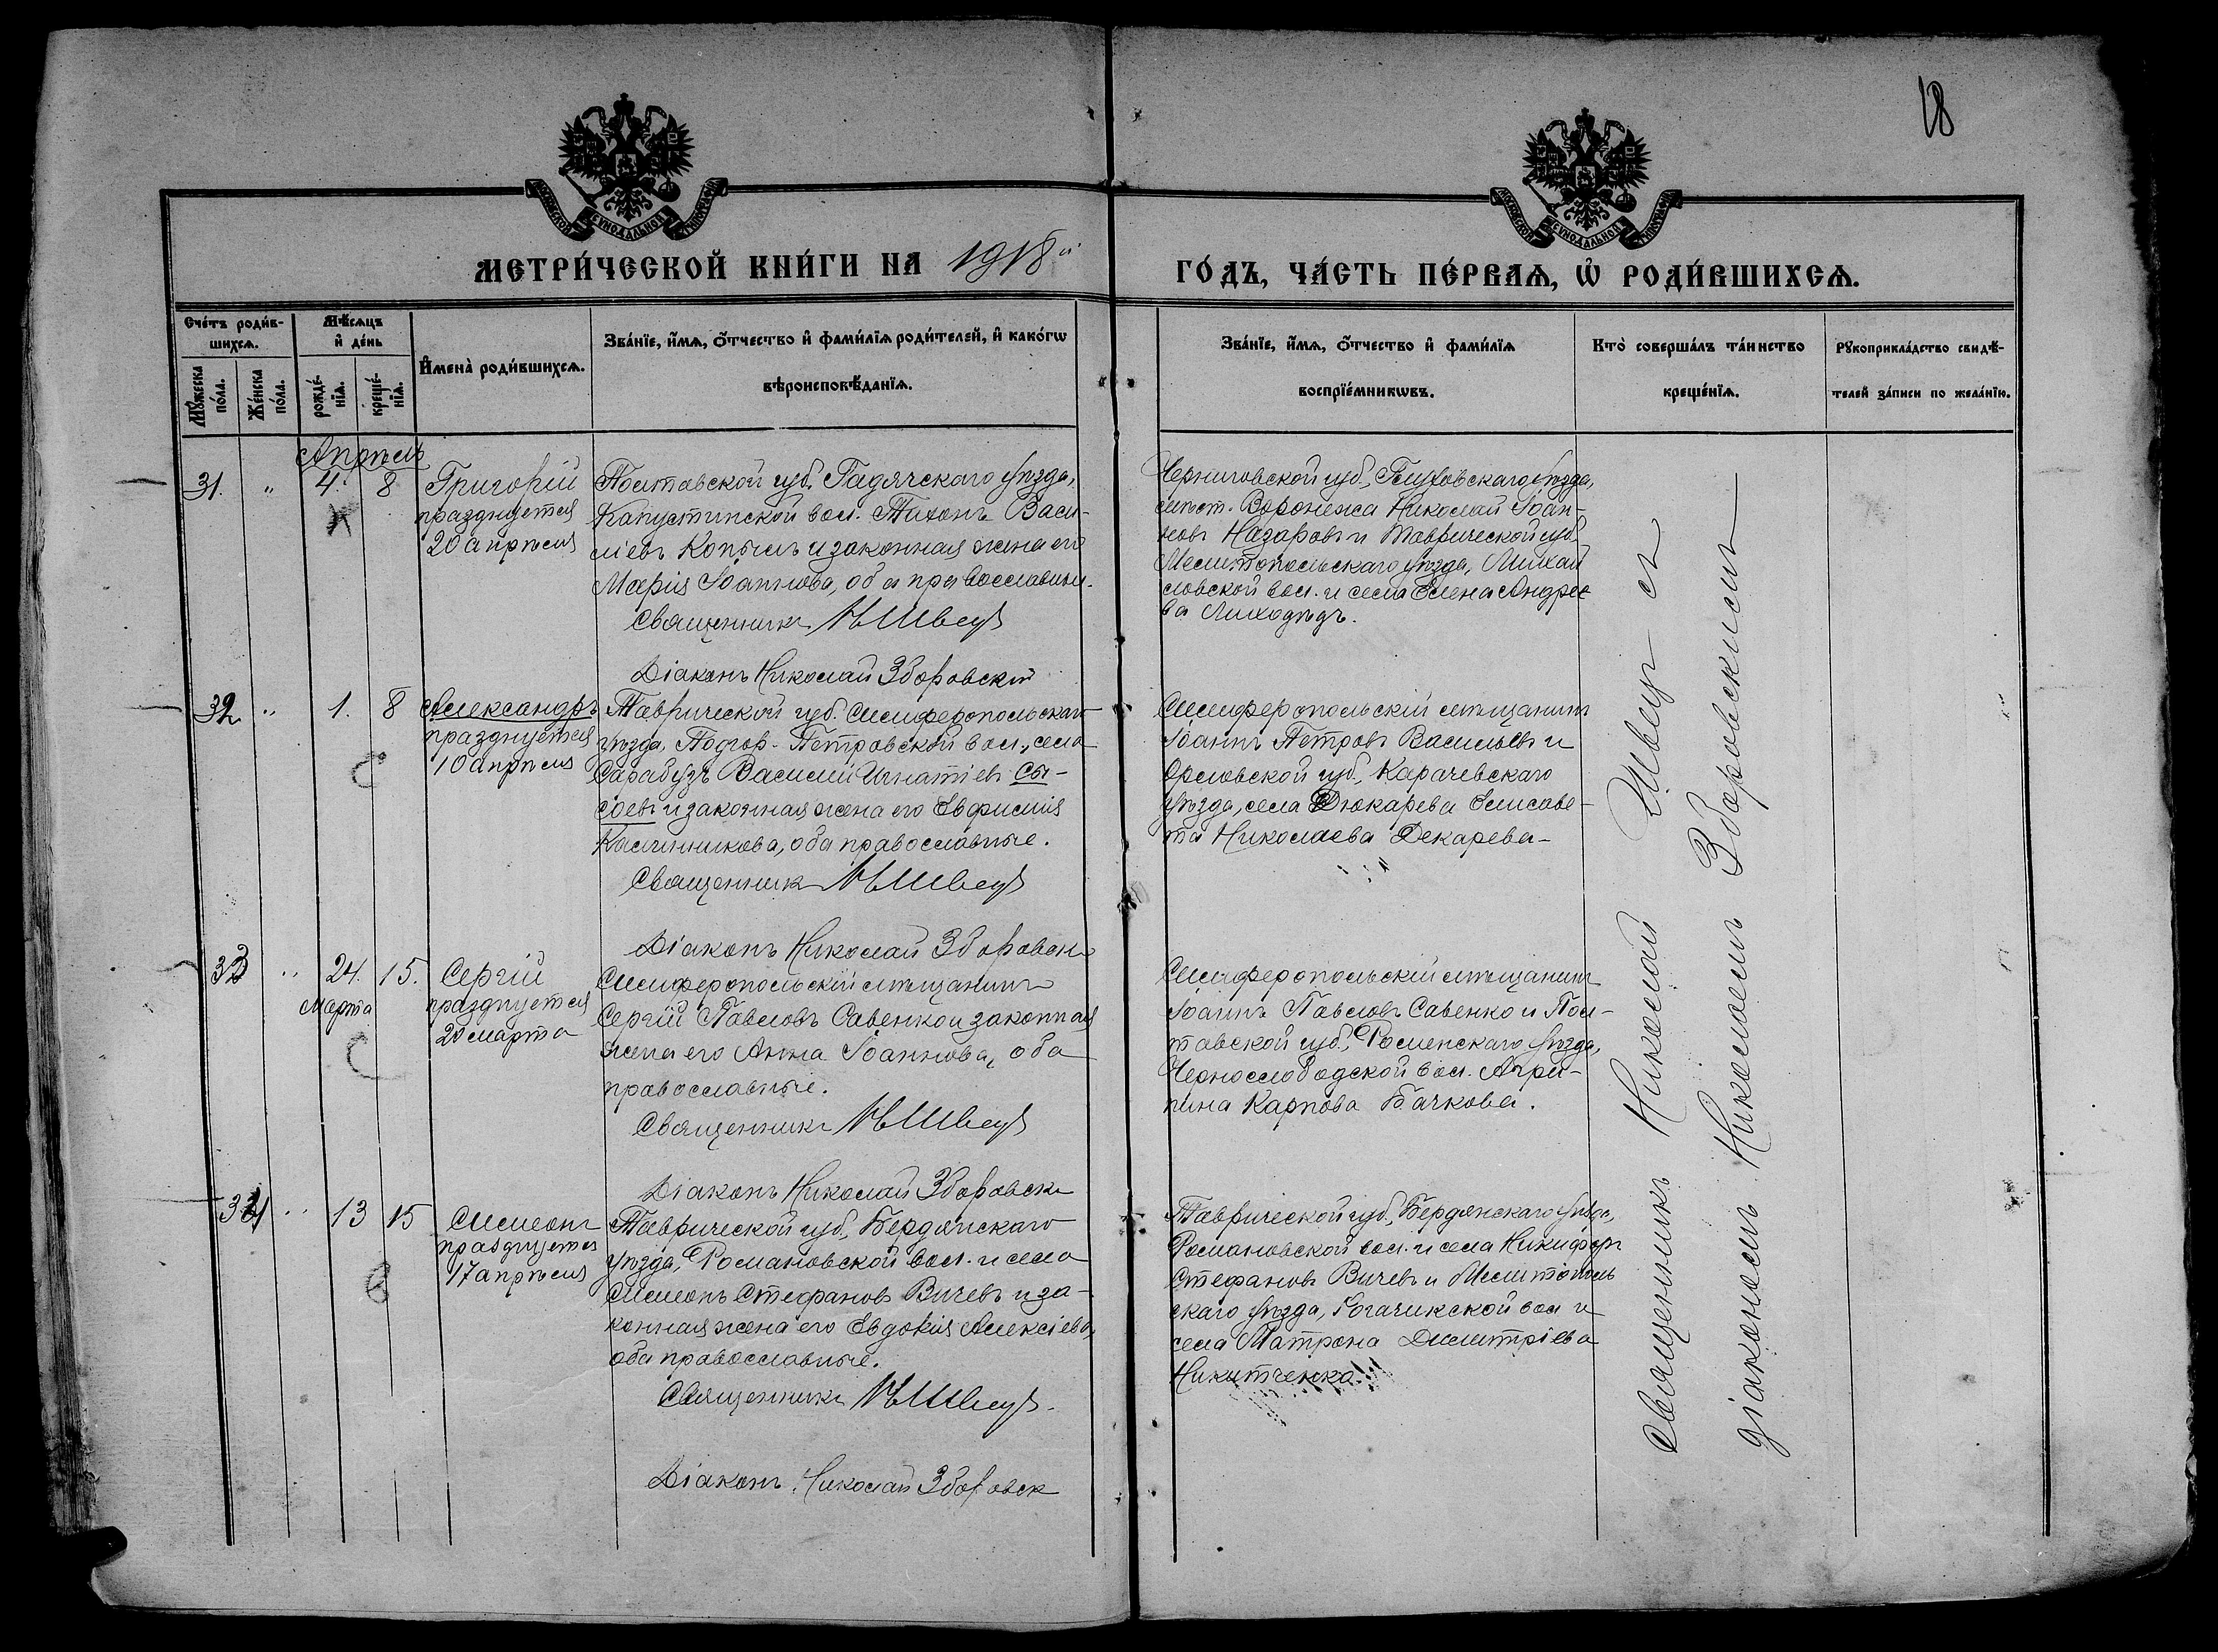 18
МОСКОВСКОЙ СѴНОДАЛЬНОЙ ТИПОГРАФІИ
МОСКОВСКОЙ СѴНОДАЛЬНОЙ ТИПОГРАФІИ
МЕТРИ́ЧЕСКОЙ КНИ́ГИ НА 1918й
ГО́ДЪ, ЧА́СТЬ ПЕ́РВАѦ, Ѡ҆ РОДИ́ВШИХСѦ.
Сче́тъ роди́в-
шихсѧ.
Мꙋ́жеска по́ла.
Же́нска по́ла.
Мѣ́сѧцъ и҆ де́нь
рожде́-
нїѧ.
креще́-
нїѧ.
И҆мена̀ роди́вшихсѧ.
Зва́нїе, и҆́мѧ, ѻ҆́тчество и҆ фами́лїѧ роди́телей, и҆ како́гѡ
вѣроисповѣ́данїѧ.
Зва́нїе, и҆́мѧ, ѻ҆́тчество и҆ фами́лїѧ
воспрїе́мникѡвъ.
Кто̀ соверша́лъ та́инство
креще́нїѧ.
Рꙋкоприкла́дство свидѣ́-
телей за́писи по жела́нїю.
Апрѣль
31. " 4. 8 Григорій
празднуется
20 апрѣля
Полтавской губ. Гадячскаго уѣзда,
Капустинской вол. Тихонъ Васи-
ліевъ Копылъ и законная жена его
Марія Іоаннова, оба православные.
Священникъ Н Швецъ
Діаконъ Николай Зборовскій
Черниговской губ., Глуховскаго уѣзда,
мѣст. Воронежа Николай Іоан-
новъ Назаровъ и Таврической губ.
Мелитопольскаго уѣзда, Михай
ловской вол. и села Елена Андрее
ва Лиходѣдъ.
32 " 1. 8 Александръ
празднуется
10 апрѣля
Таврической губ. Симферопольскаго
уѣзда, Подгор.-Петровской вол., села
Сарабузъ Василий Игнатіевъ Сы-
соевъ и законная жена его Евфимія
Калинникова, оба православные.
Священникъ Н Швецъ
Діаконъ Николай Зборовск
Симферопольскій мѣщанинъ
Іоаннъ Петровъ Васильевъ и
Орловской губ., Карачевскаго
уѣзда, села Дюкарева Елисаве-
та Николаева Декарева
33 " 24. 15. Сергій
Марта
празднуется
20 марта
Симферопольскій мѣщанинъ
Сергій Павловъ Савенко и законная
жена его Анна Іоаннова, оба
православные.
Священникъ Н Швецъ
Діаконъ Николай Зборовск
Симферопольскій мѣщанинъ
Іоаннъ Павловъ Савенко и Пол-
тавской губ., Роменскаго уѣзда,
Чернослободской вол. Агрип-
пина Карпова Бачкова.
34 " 13 15 Симеонъ
празднуется
17 апрѣля
Таврической губ., Бердянскаго
уѣзда, Романовской вол. и села
Симеонъ Стефановъ Вичевъ и за-
конная жена его Евдокія Алексіева,
оба православные.
Священникъ Н Швецъ.
Діаконъ Николай Зборовск
Таврической губ., Бердянскаго уѣзда,
Романовской вол. и села Никифоръ
Стефановъ Вичевъ и Мелитополь
скаго уѣзда, Рогачикской вол и
села Матрона Димитріева
Никитченко
Священникъ Николай Швецъ съ
діакономъ Николаемъ Зборовскимъ